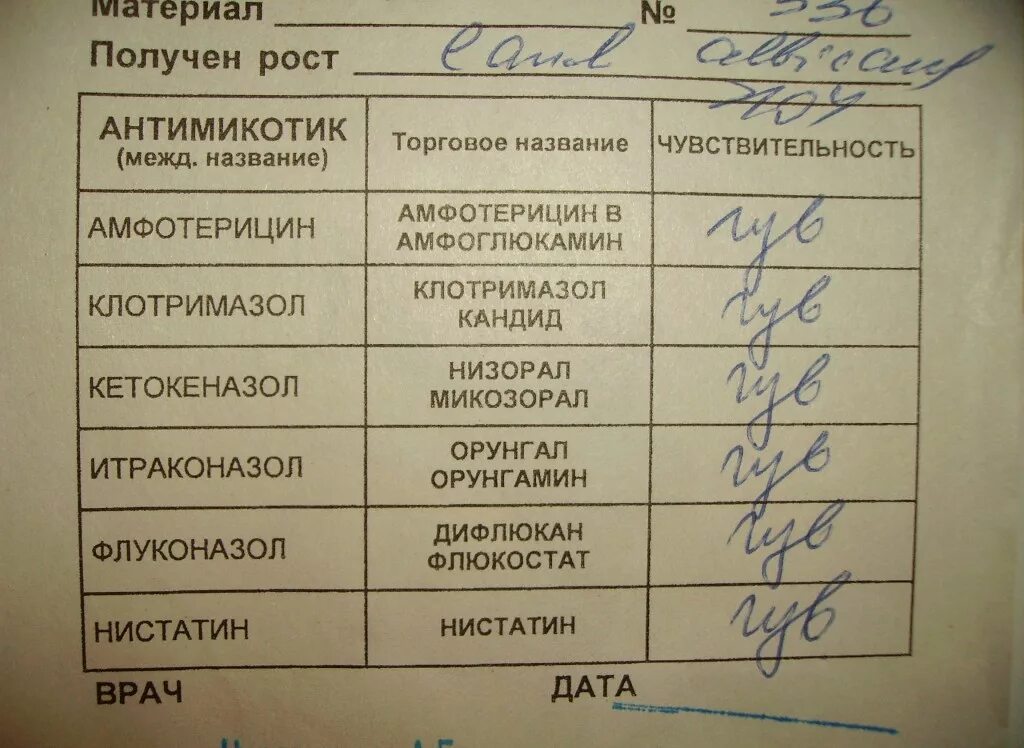 Материал № 336
Получен рост Cand albicans
АНТИМИКОТИК
(межд. название)
Торговое название
ЧУВСТВИТЕЛЬНОСТЬ
АМФОТЕРИЦИН
АМФОТЕРИЦИН В
АМФОГЛЮКАМИН
чув
КЛОТРИМАЗОЛ
КЛОТРИМАЗОЛ
КАНДИД
чув
КЕТОКЕНАЗОЛ
НИЗОРАЛ
МИКОЗОРАЛ
чув
ИТРАКОНАЗОЛ
ОРУНГАЛ
ОРУНГАМИН
чув
ФЛУКОНАЗОЛ
ДИФЛЮКАН
ФЛЮКОСТАТ
чув
НИСТАТИН
НИСТАТИН
чув
ВРАЧ ДАТА